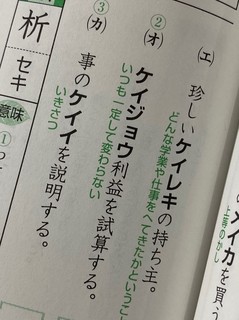 上等のかし
イカを買う
㋓ 珍しいケイレキの持ち主。
どんな学業や仕事をへてきたかというこ
②㋔ ケイジョウ利益を試算する。
いつも一定して変わらない
③㋕ 事のケイイを説明する。
いきさつ
析
セキ
意味
①